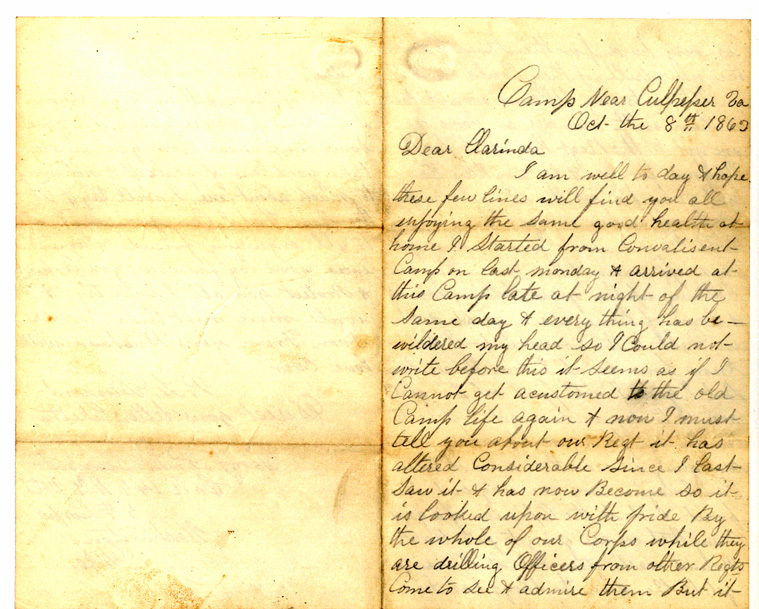 Camp Near Culpeper Va
Oct the 8th 1863
Dear Clarinda
I am well to day & hope
these few lines will find you all
enjoying the same good health at
home I Started from Convalisent
Camp on last monday & arrived at
this Camp late at night of the
same day & every thing has be-
wildered my head so I Could not
write before this it Seems as if I
Cannot get acustomed to the old
Camp life again & now I must
tell you about our Regt it has
altered Considerable Since I last
Saw it & has now Become so it
is looked upon with pride By
the whole of our Corps while they
are drilling Officers from other Regts
Come to see & admire them But it